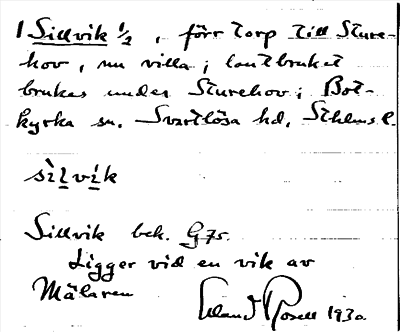 1 Sillvik ½, förr torp till Sture-
hov, nu villa; lantbruket
brukes under Sturehov; Bot-
kyrka sn. Svartlösa hd, Sthlms l.
sìlvik
Sillvik bek. G7r.
Ligger vid en vik av
Mälaren
Erland Rosell 1930.